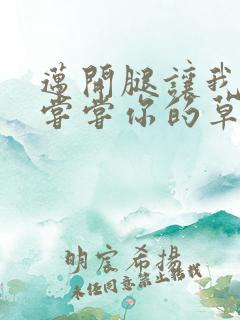 邁開腿讓我
嘗嘗你的草
明宸希揚
未经同意禁止转载